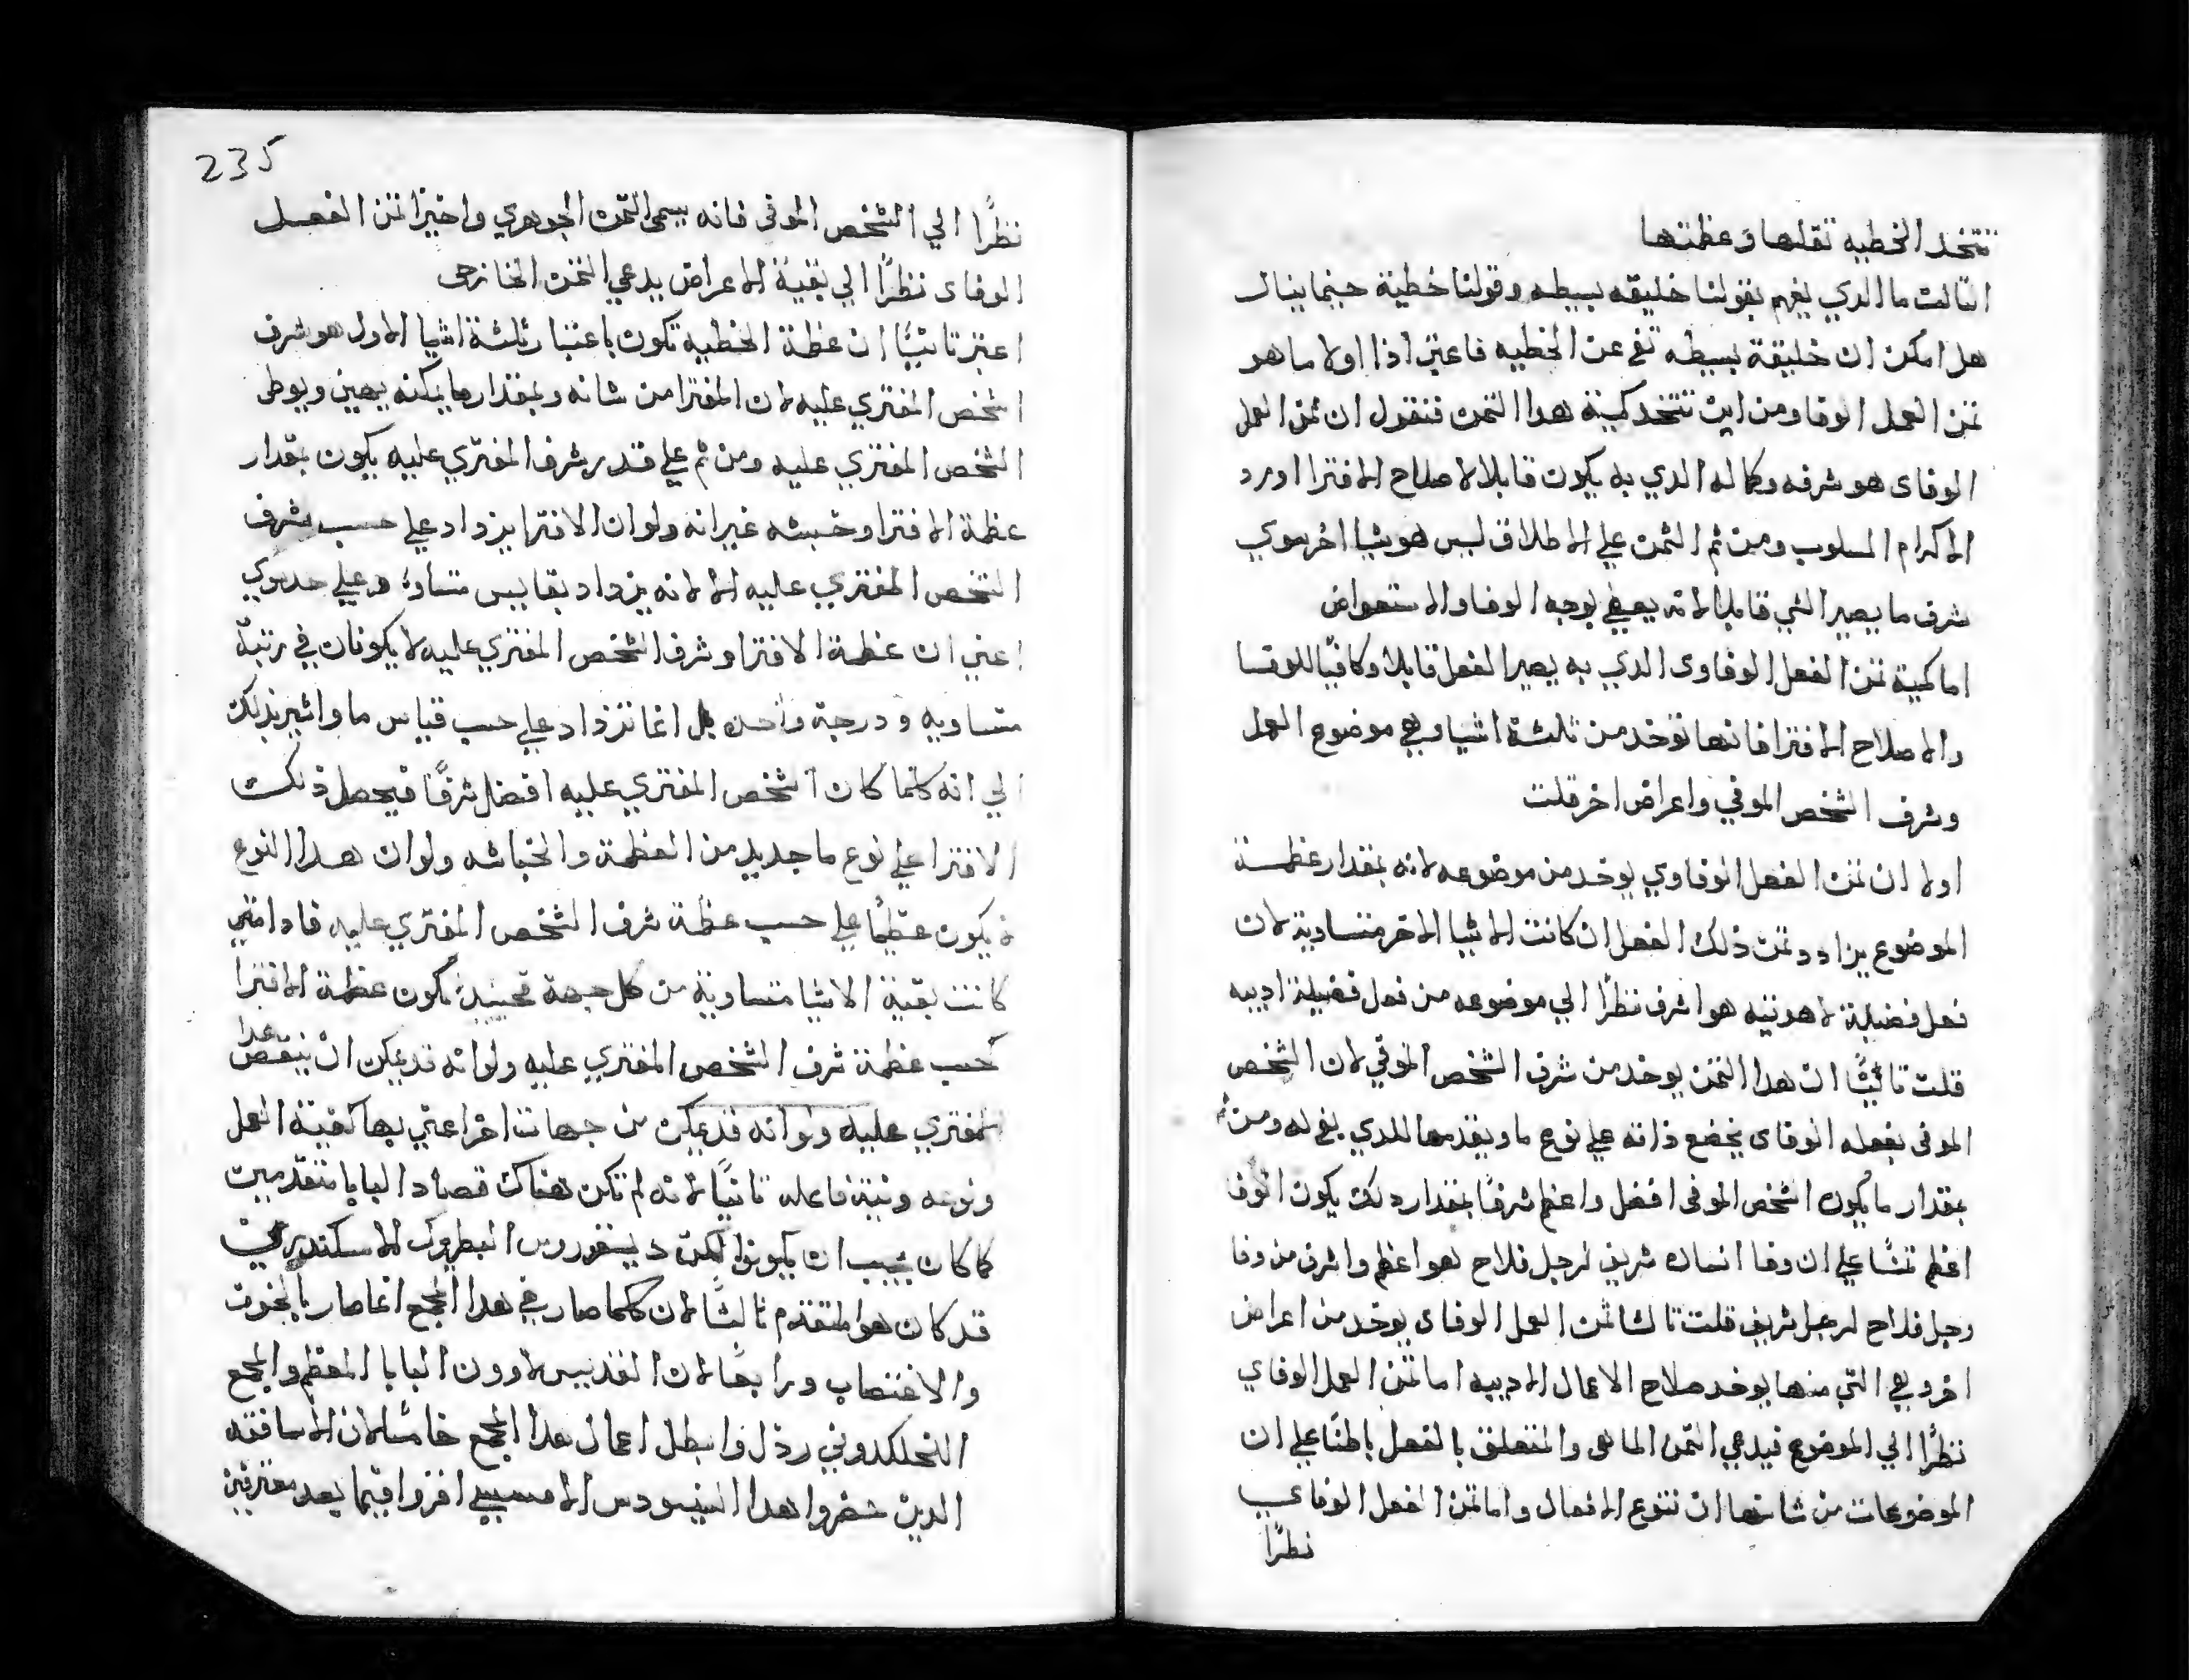 تتخد الخطيه تقلها وعظمتها
التالت ما الدي يفهم بقولنا خليقه بسيطه وقولنا خطية حينما ينال
هل امكن ان خليقة بسيطه تفي عن الخطيه فاعتبر اذا اولا ما هو
تمن العمل الوفا ومن اين تتخد كمية هدا التمن فنقول ان تمن العمل
الوفاى هو شرفه وكماله الدي به يكون قابلا لاصلاح الافترا اورد
الاكرام المسلوب ومن ثم الثمن علي الاطلاق ليس هو شيا اخر سوي
شرف ما يصير الشي قابلا لانه يعطي بوجه الوفا والاستعواض
اما كمية تمن الفعل الوفاوى الدي به يصير الفعل قابلا وكافيا للوفا
والاصلاح الافترا فانها توخد من ثلثة اشيا وهي موضوع العمل
وشرف الشخص الموفي واعراض اخر قلت
اولا ان تمن الفعل الوفاوي يوخد من موضوعه لانه بمقدار عظمة
الموضوع يزادد تمن ذلك الفعل ان كانت الاشيا الاخر متساوية لان
فعل فضيلة لاهوتيه هو اشرف نظرًا الي موضوعه من فعل فضيلة ادبيه
قلت تانيًا ان هدا التمن يوخد من شرف الشخص الموفي لان الشخص
الموفى بفعله الوفاى يخضع ذاته علي نوع ما ويقدمها للدي يفي له ومن ثم
بقدار ما يكون الشخص الموفى افضل واعظم شرفًا بمقدار دلك يكون الوفا
اعظم تمنًا علي ان وفا انسان شريف لرجل فلاح هو اعظم واشرف من وفا
رجل فلاح لرجل شريف قلت تالثا تمن العمل الوفاى يوخد من اعراض
اخر وهي التي منها يوخد صلاح الاعمال الادبيه اما تمن العمل الوفاي
نظرًا الي الموضوع فيدعي التمن الماهى والمتعلق بالفعل باطنًا علي ان
الموضوعات من شانها ان تنوع الافعال واما تمن الفعل الوفاعي
نظرًا
235
نظرًا الي الشخص الموفى فانه يسمى التمن الجوهري واخيرًا تمن الفعل
الوفاى نظرًا الي بقية الاعراض يدعي التمن الخارجى
اعتبر تانيًا ان عظمة الخطيه تكون باعتبار ثلثة اشيا الاول هو شرف
الشخص المفتري عليه لان المفترا من شانه وبمقدار ما يمكنه يهين ويوطى
الشخص المفتري عليه ومن ثم علي قدر شرف المفتري عليه يكون بمقدار
عظمة الافترا وخبثه غير انه ولو ان الافترا يزداد علي حسب شرف
الشخص المفتري عليه الا انه يزداد بقاييس متساوة وعلي حد سوي
اعني ان عظمة الافترا وشرف الشخص المفتري عليه لا يكونان في رتبة
متساويه ودرجة واحده بل انما تزداد علي حسب قياس ما واشير بذلك
الي انه كلما كان الشخص المفتري عليه افضل شرفًا فيحصل ذلك
الافترا علي نوع ما جديد من العظمة والخباثه ولو ان هدا النوع
لا يكون عظيمًا علي حسب عظمة شرف الشخص المفتري عليه فادا متي
كانت بقية الاشيا متساوية من كل جهة فحينيدٍ تكون عظمة الافترا
كحسب عظمة شرف الشخص المفتري عليه ولو انه قد يمكن ان ينقص عدا
المفتري عليه ولو انه قد يمكن من جهات اخر اعني بها كيفية العمل
ونوعه ونية فاعله تانيًا لانه لم تكن هناك قصاد البابا متقدمين
كما كان يجب ان يكونوا لكن ديسقوروس البطريرك الاسكندري
قد كان هو المتقدم تالثًا لان كلما صار في هدا المجمع انما صار بالخوف
والاغتصاب ورابعًا لان القديس لاوون البابا المعظم والمجمع
الخلكدوني رذل وابطل اعمال هدا المجمع خامسًا لان الاساقفه
الدين حضروا هدا السينودس الافسسي اقروا فيما بعد معترفين